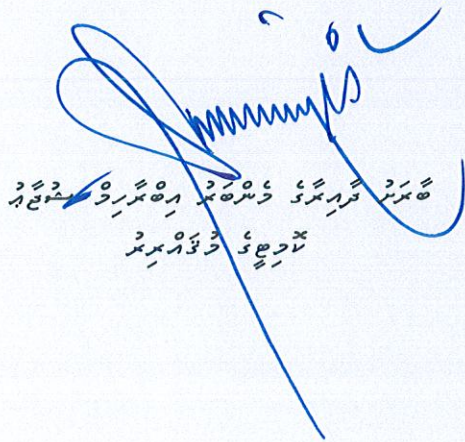 ބާރަށު ދާއިރާގެ މެންބަރު އިބްރާހިމް ޝުޖާޢު
ކޮމިޓީގެ މުޤައްރިރު